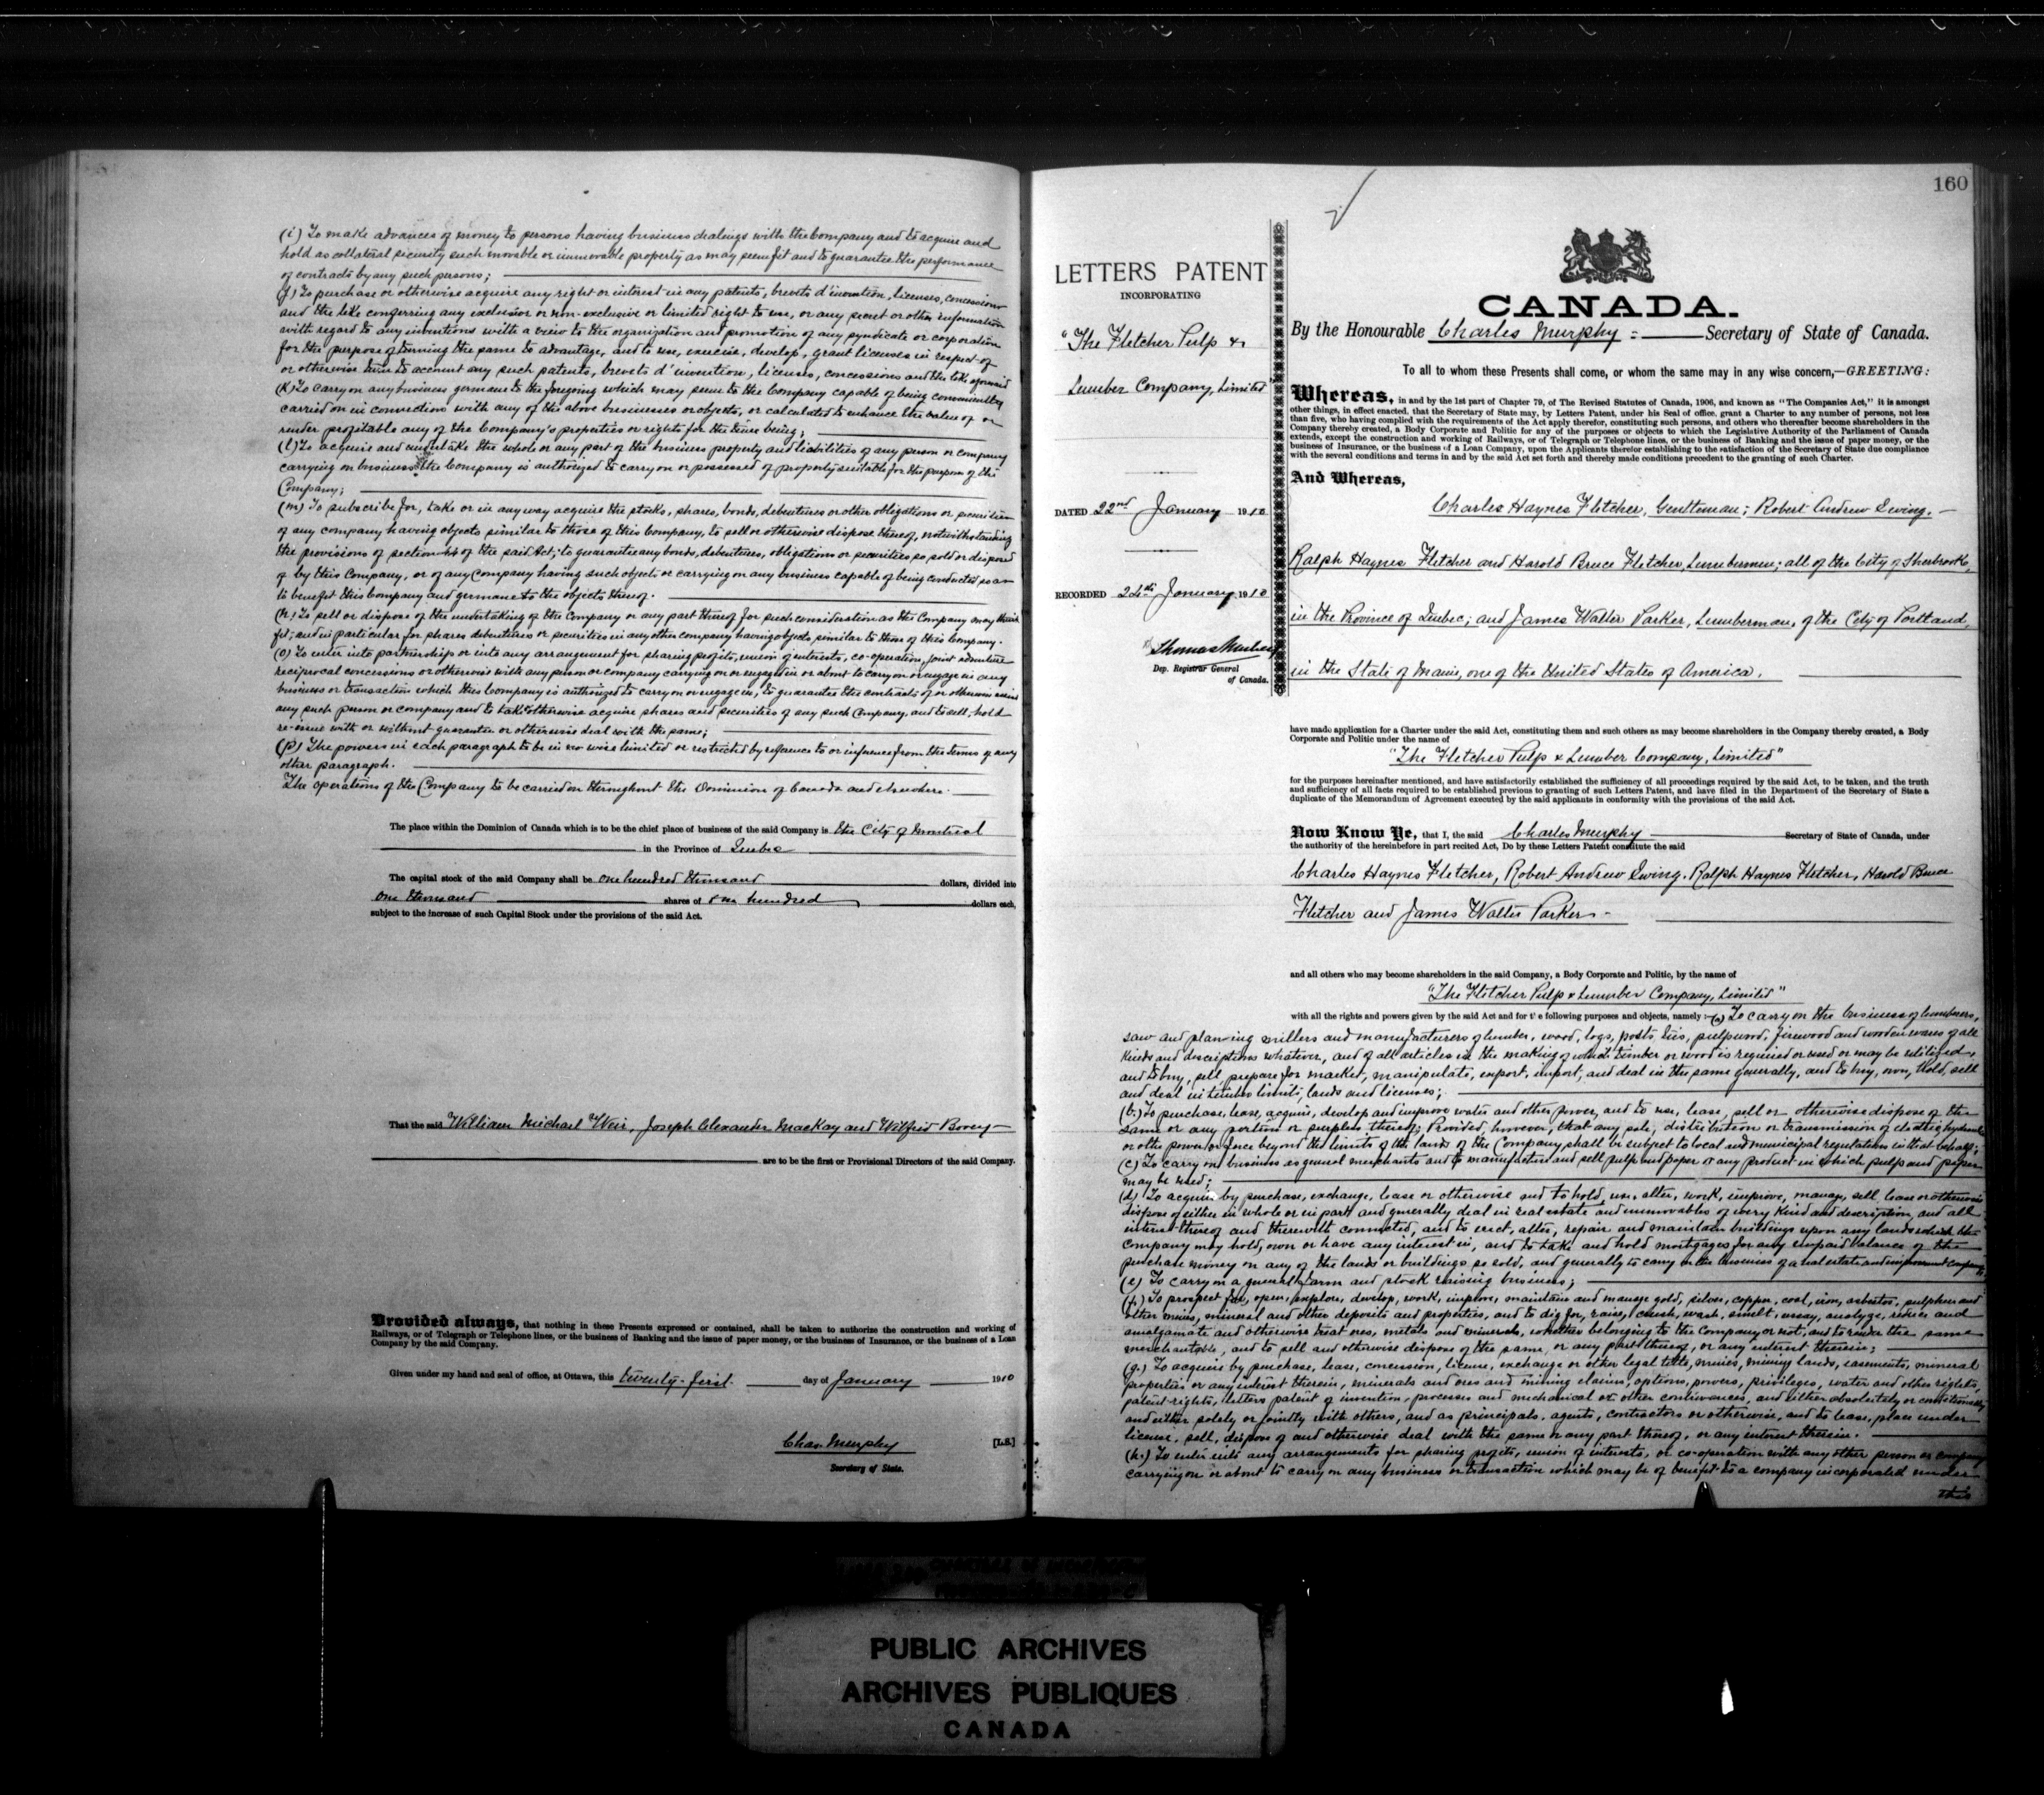 (i) To make advances of money to persons having business dealings with the Company and to acquire and
hold as collateral security such movable or immovable property as may seem fit and to guarantee the performance
of contracts by any such persons;
(j) To purchase or otherwise acquire any right or interest in any patents, brevets d'invention, licenses, concessions
and the like conferring any exclusive or non-exclusive or limited right to use, or any secret or other information
with regard to any inventions with a view to the organization and promotion of any syndicate or corporation
for the purpose of turning the same to advantage, and to use, exercise, develop, grant licenses in respect of
or otherwise turn to account any such patents, brevets d'invention, licenses, concessions and the like aforesaid
(k) To carry on any business germane to the foregoing which may seem to the Company capable of being conveniently
carried on in connection with any of the above businesses or objects, or calculated to enhance the value of or
render profitable any of the Company's properties or rights for the time being;
(l) To acquire and undertake the whole or any part of the business property and liabilities of any person or company
carrying on business the Company is authorized to carry on or possessed of property suitable for the purposes of the
Company;
(m) To subscribe for, take or in any way acquire the stocks, shares, bonds, debentures or other obligations or securities
of any company having objects similar to those of this Company, to sell or otherwise dispose thereof, notwithstanding
the provisions of section 44 of the said Act; to guarantee any bonds, debentures, obligations or securities so sold or disposed
of by this Company, or of any Company having such objects or carrying on any business capable of being conducted so as
to benefit this Company and germane to the objects thereof.
(n) To sell or dispose of the undertaking of the Company or any part thereof for such consideration as the Company may think
fit; and in particular for shares debentures or securities in any other company having objects similar to those of this Company.
(o) To enter into partnership or into any arrangement for sharing profits, union of interests, co-operation, joint adventure
reciprocal concessions or otherwise with any person or company carrying on or engaged in or about to carry on or engage in any
business or transaction which this Company is authorized to carry on or engage in, to guarantee the contracts of or otherwise assist
any such person or company and to take or otherwise acquire shares and securities of any such Company, and to sell, hold
re-issue with or without guarantee or otherwise deal with the same;
(p) The powers in each paragraph to be in no wise limited or restricted by reference to or inference from the terms of any
other paragraph.
The operations of the Company to be carried on throughout the Dominion of Canada and elsewhere.
The place within the Dominion of Canada which is to be the chief place of business of the said Company is the City of Montreal
in the Province of Quebec
The capital stock of the said Company shall be one hundred thousand dollars, divided into
one thousand shares of one hundred dollars each,
subject to the increase of such Capital Stock under the provisions of the said Act.
That the said William Michael Weir, Joseph Alexander MacKay and Wilfrid Bovey
are to be the first or Provisional Directors of the said Company.
Provided always, that nothing in these Presents expressed or contained, shall be taken to authorize the construction and working of
Railways, or of Telegraph or Telephone lines, or the business of Banking and the issue of paper money, or the business of Insurance, or the business of a Loan
Company by the said Company.
Given under my hand and seal of office, at Ottawa, this twenty-first day of January 1910
Chas. Murphy [L.S.]
Secretary of State.
160
LETTERS PATENT
INCORPORATING
"The Fletcher Pulp &
Lumber Company, Limited"
DATED 22nd January 1910
RECORDED 24th January 1910
Thomas Mulvey
Dep. Registrar General
of Canada.
CANADA.
By the Honourable Charles Murphy Secretary of State of Canada.
To all to whom these Presents shall come, or whom the same may in any wise concern,—GREETING:
Whereas, in and by the 1st part of Chapter 79, of The Revised Statutes of Canada, 1906, and known as "The Companies Act," it is amongst
other things, in effect enacted, that the Secretary of State may, by Letters Patent, under his Seal of office, grant a Charter to any number of persons, not less
than five, who having complied with the requirements of the Act apply therefor, constituting such persons, and others who thereafter become shareholders in the
Company thereby created, a Body Corporate and Politic for any of the purposes or objects to which the Legislative Authority of the Parliament of Canada
extends, except the construction and working of Railways, or of Telegraph or Telephone lines, or the business of Banking and the issue of paper money, or the
business of Insurance, or the business of a Loan Company, upon the Applicants therefor establishing to the satisfaction of the Secretary of State due compliance
with the several conditions and terms in and by the said Act set forth and thereby made conditions precedent to the granting of such Charter.
And Whereas,
Charles Haynes Fletcher, Gentleman; Robert Andrew Ewing,
Ralph Haynes Fletcher and Harold Bruce Fletcher, Lumbermen; all of the City of Sherbrooke,
in the Province of Quebec; and James Walter Parker, Lumberman, of the City of Portland,
in the State of Maine, one of the United States of America,
have made application for a Charter under the said Act, constituting them and such others as may become shareholders in the Company thereby created, a Body
Corporate and Politic under the name of
"The Fletcher Pulp & Lumber Company, Limited"
for the purposes hereinafter mentioned, and have satisfactorily established the sufficiency of all proceedings required by the said Act, to be taken, and the truth
and sufficiency of all facts required to be established previous to granting of such Letters Patent, and have filed in the Department of the Secretary of State a
duplicate of the Memorandum of Agreement executed by the said applicants in conformity with the provisions of the said Act.
Now Know Ye, that I, the said Charles Murphy Secretary of State of Canada, under
the authority of the hereinbefore in part recited Act, Do by these Letters Patent constitute the said
Charles Haynes Fletcher, Robert Andrew Ewing, Ralph Haynes Fletcher, Harold Bruce
Fletcher and James Walter Parker
and all others who may become shareholders in the said Company, a Body Corporate and Politic, by the name of
"The Fletcher Pulp & Lumber Company, Limited"
with all the rights and powers given by the said Act and for the following purposes and objects, namely:—(a) To carry on the business of lumberers,
saw and planing millers and manufacturers of lumber, wood, logs, posts, ties, pulpwood, firewood and wooden wares of all
kinds and descriptions whatever, and of all articles in the making of which timber or wood is required or used or may be utilized,
and to buy, sell, prepare for market, manipulate, export, import, and deal in the same generally, and to buy, own, hold, sell
and deal in timber limits, lands and licenses;
(b) To purchase, lease, acquire, develop and improve water and other power, and to use, lease, sell or otherwise dispose of the
same or any portion or surplus thereof; Provided, however, that any sale, distribution or transmission of electric, hydraulic
or other power or force beyond the limits of the lands of the Company, shall be subject to local and municipal regulations in that behalf;
(c) To carry on business as general merchants and to manufacture and sell pulp and paper or any product in which pulp and paper
may be used;
(d) To acquire by purchase, exchange, lease or otherwise and to hold, use, alter, work, improve, manage, sell, lease or otherwise
dispose of either in whole or in part and generally deal in real estate and immovables of every kind and description, and all
interest thereof and therewith connected, and to erect, alter, repair and maintain buildings upon any lands which the
Company may hold, own or have any interest in, and to take and hold mortgages for any unpaid balance of the
purchase money on any of the lands or buildings so sold, and generally to carry on the business of a real estate and improvement company;
(e) To carry on a general farm and stock raising business;
(f) To prospect for, open, explore, develop, work, improve, maintain and manage gold, silver, copper, coal, iron, asbestos, sulphur and
other mines, mineral and other deposits and properties, and to dig for, raise, crush, wash, smelt, assay, analyze, reduce and
amalgamate and otherwise treat ores, metals and minerals, whether belonging to the Company or not, and to render the same
merchantable, and to sell and otherwise dispose of the same, or any part thereof, or any interest therein;
(g) To acquire by purchase, lease, concession, license, exchange or other legal title, mines, mining lands, easements, mineral
properties or any interest therein, minerals and ores and mining claims, options, powers, privileges, water and other rights,
patent rights, letters patent of invention, processes and mechanical or other contrivances, and either absolutely or conditionally
and either solely or jointly with others, and as principals, agents, contractors or otherwise, and to lease, place under
license, sell, dispose of and otherwise deal with the same or any part thereof, or any interest therein.
(h) To enter into any arrangements for sharing profits, union of interests, or co-operation with any other person or company
carrying on or about to carry on any business or transaction which may be of benefit to a company incorporated under
this
PUBLIC ARCHIVES
ARCHIVES PUBLIQUES
CANADA